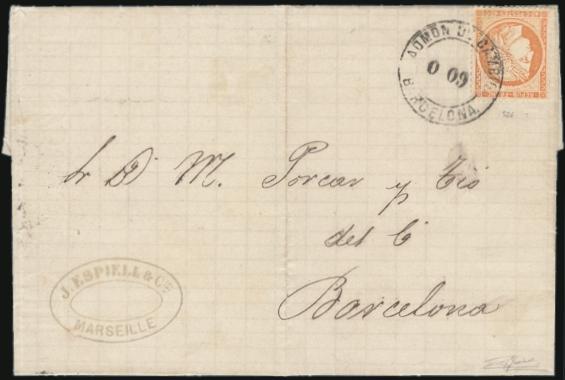 ADMON DE CAMBIO
0 09
BARCELONA.
Sr D. M. Porcar y Tio
del C.
Barcelona
J. ESPIELL & Cie
MARSEILLE